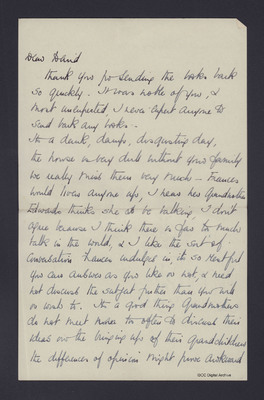 Dear David
Thank you for sending the books back
so quickly. It was noble of you, &
most unexpected, I never expect anyone to
send back any books.
Its a dank, damp, disgusting day,
the house is very dull without your family
we really miss them very much - Frances
would liven anyone up, I hear her Grandmother
Edwards thinks she sd be talking, I don't
agree because I think there is far to much
talk in the world, & I like the sort of
conversation Frances indulges in, its so restful
you can answer as you like or not, & need
not discuss the subject further than you want
or want to. Its a good thing Grandmothers
do not meet more to often to discuss their
ideas on the bringing up of their Grandchildren
the differences of opinion might prove awkward
QCC Digital Archive